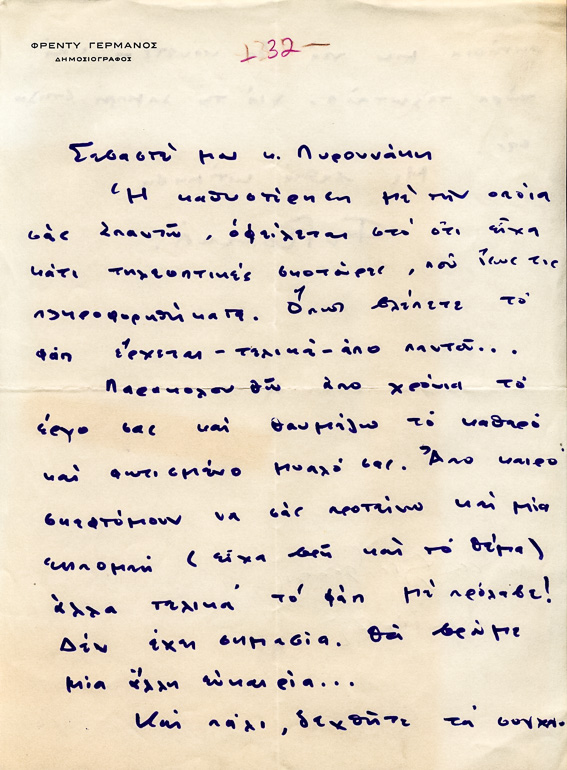 ΦΡΕΝΤΥ ΓΕΡΜΑΝΟΣ
ΔΗΜΟΣΙΟΓΡΑΦΟΣ
132-
Σεβαστέ μου κ. Πυρουνάκη
Ἡ καθυστέρηση μέ τήν οποία
σᾶς ἀπαντῶ, ὀφείλεται στό ὅτι εἶχα
κάτι τηλεοπτικές σκοτοῦρες, πού ἴσως τις
πληροφορηθήκατε. Ὅπως βλέπετε τό
φάπ ἔρχεται - τελικά - ἀπό παντοῦ...
Παρακολουθῶ ἀπο χρόνια τό
ἔργο σας καί θαυμάζω τό καθαρό
καί φωτισμένο μυαλό σας. Ἀπο καιρό
σκεφτόμουν να σᾶς προτείνω καί μία
ἐκπομπή (εἶχα βρῆ καί τό θέμα)
ἀλλα τελικά τό φάπ μέ πρόλαβε!
Δέν ἔχει σημασία. Θά βρῶμε
μία ἄλλη εὐκαιρία...
Καί πάλι, δεχθῆτε τά συγχα-